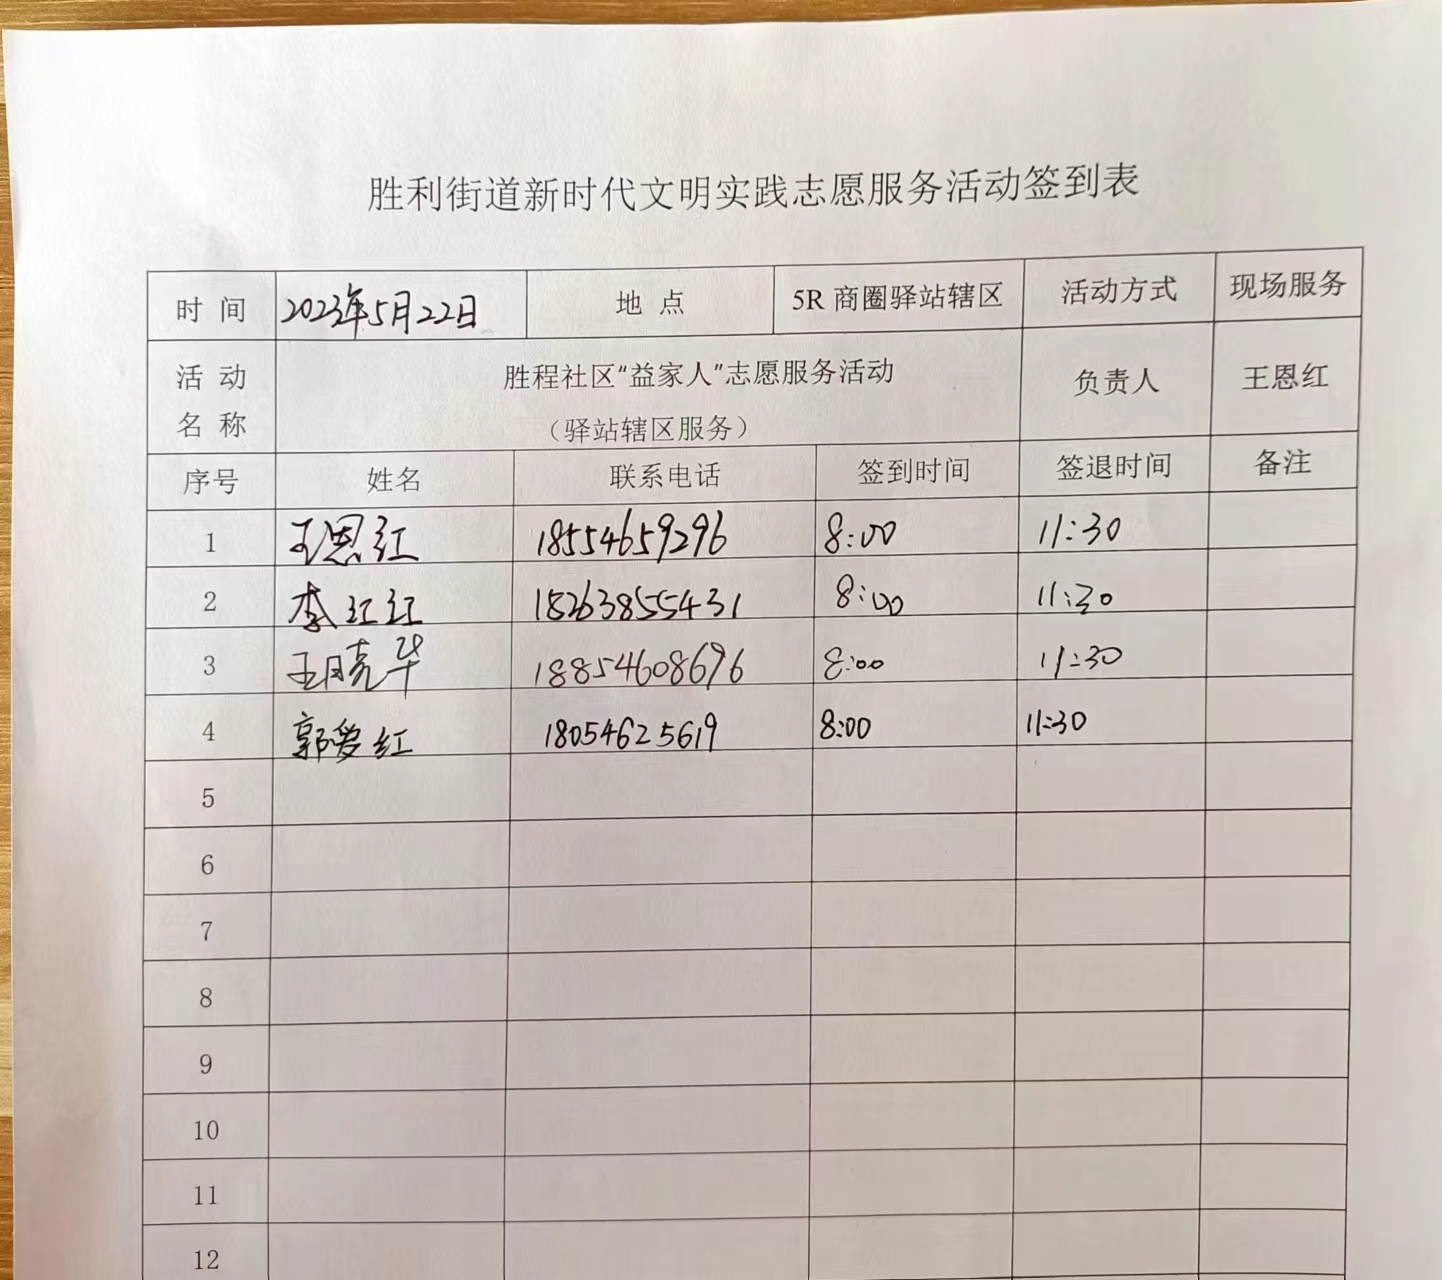 胜利街道新时代文明实践志愿服务活动签到表
时 间 2023年5月22日 地 点 5R 商圈驿站辖区 活动方式 现场服务
活 动 名 称 胜程社区“益家人”志愿服务活动 负责人 王恩红
（驿站辖区服务）
序号 姓名 联系电话 签到时间 签退时间 备注
1 王恩红 18554659296 8:00 11:30
2 李红红 18263855431 8:00 11:30
3 王晓华 18854608696 8:00 11:30
4 郭爱红 18054625619 8:00 11:30
5
6
7
8
9
10
11
12